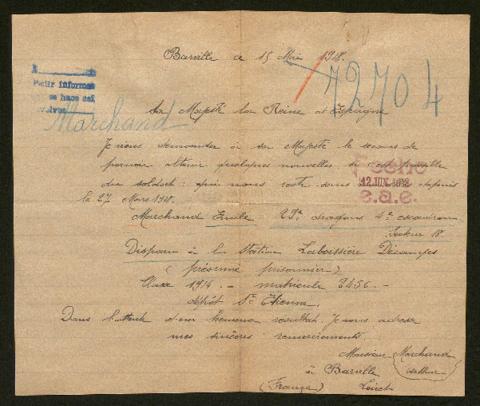 Barville le 15 Mai 1918.
72704
Marchand
Sa Majesté la Reine d'Espagne
Je vous demander à sa Majesté le secours de
pouvoir obtenir quelques nouvelles de
du soldat: qui nous reste sans depuis
le 27 Mars 1918.
Marchand Emile 29e dragons 4e escadron
Secteur 18
Disparu à la Station Laboissière Décampes
(présumé prisonnier)
Classe 1914 - matricule 3456 -
dépôt St Etienne.
Dans l'attente d'un heureux résultat. Je vous adresse
mes sincères remerciements.
12 JUN. 1918
e.a.e.
Monsieur Marchand
à Barville
(France) Loiret